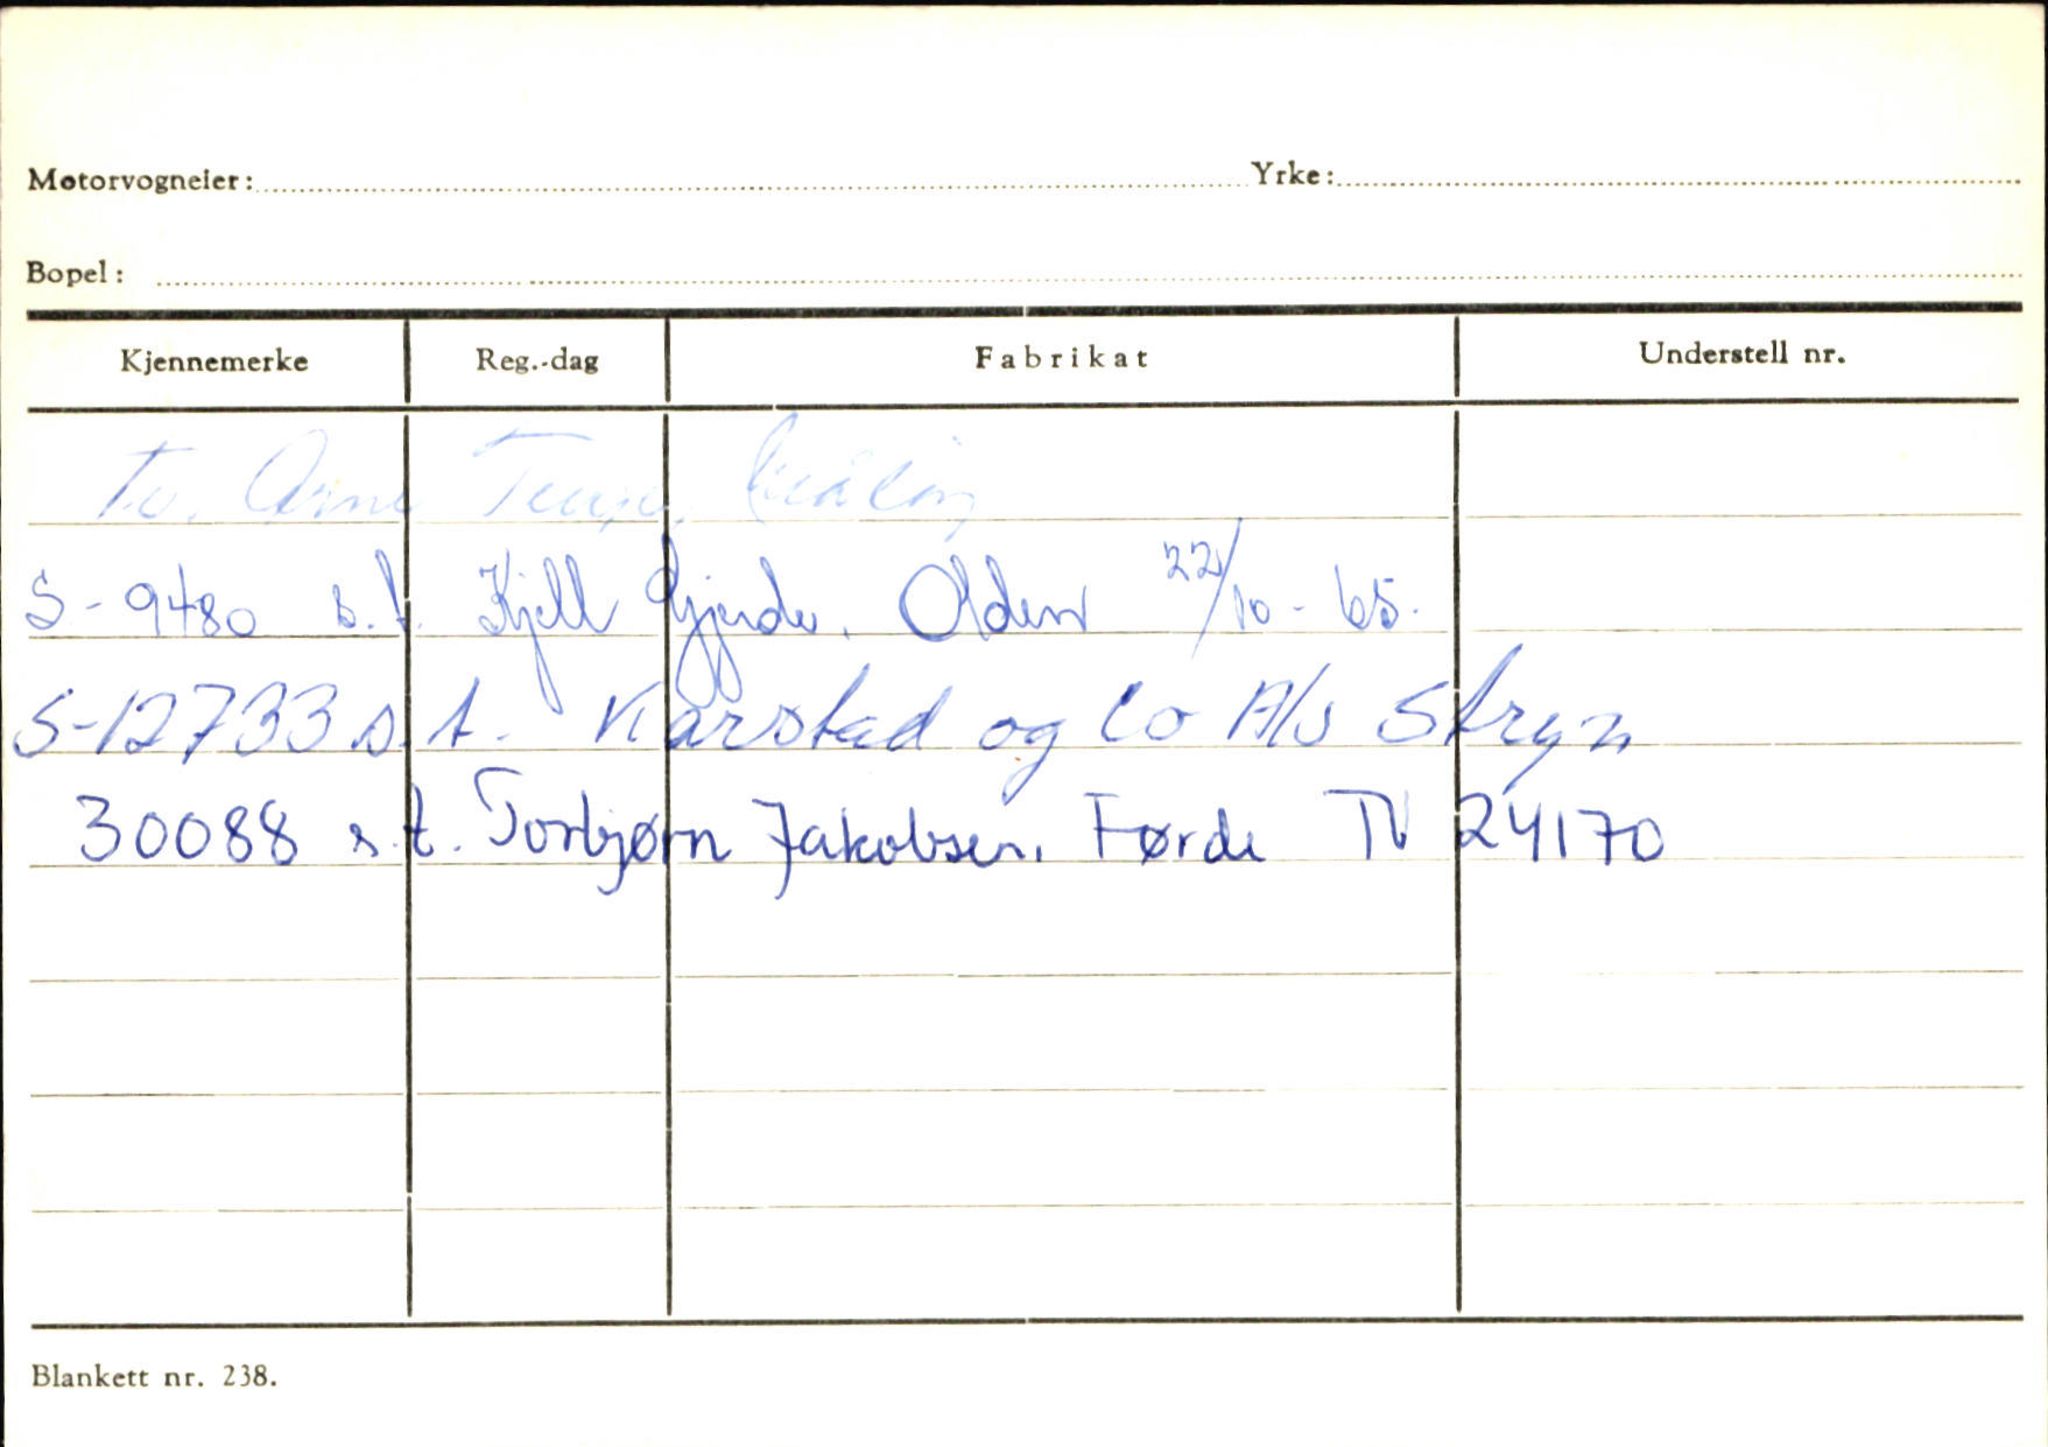 Motorvogneier: Yrke:
Bopel:
Kjennemerke Reg.-dag Fabrikat Understell nr.
Arne
S-9480 s.t. Kjell Gjerde. Olden 22/10-65.
S-12733 s.t. Karstad og Co A/S Stryn
30088 s.t. Torbjørn Jakobsen, Førde TV 24170
Blankett nr. 238.